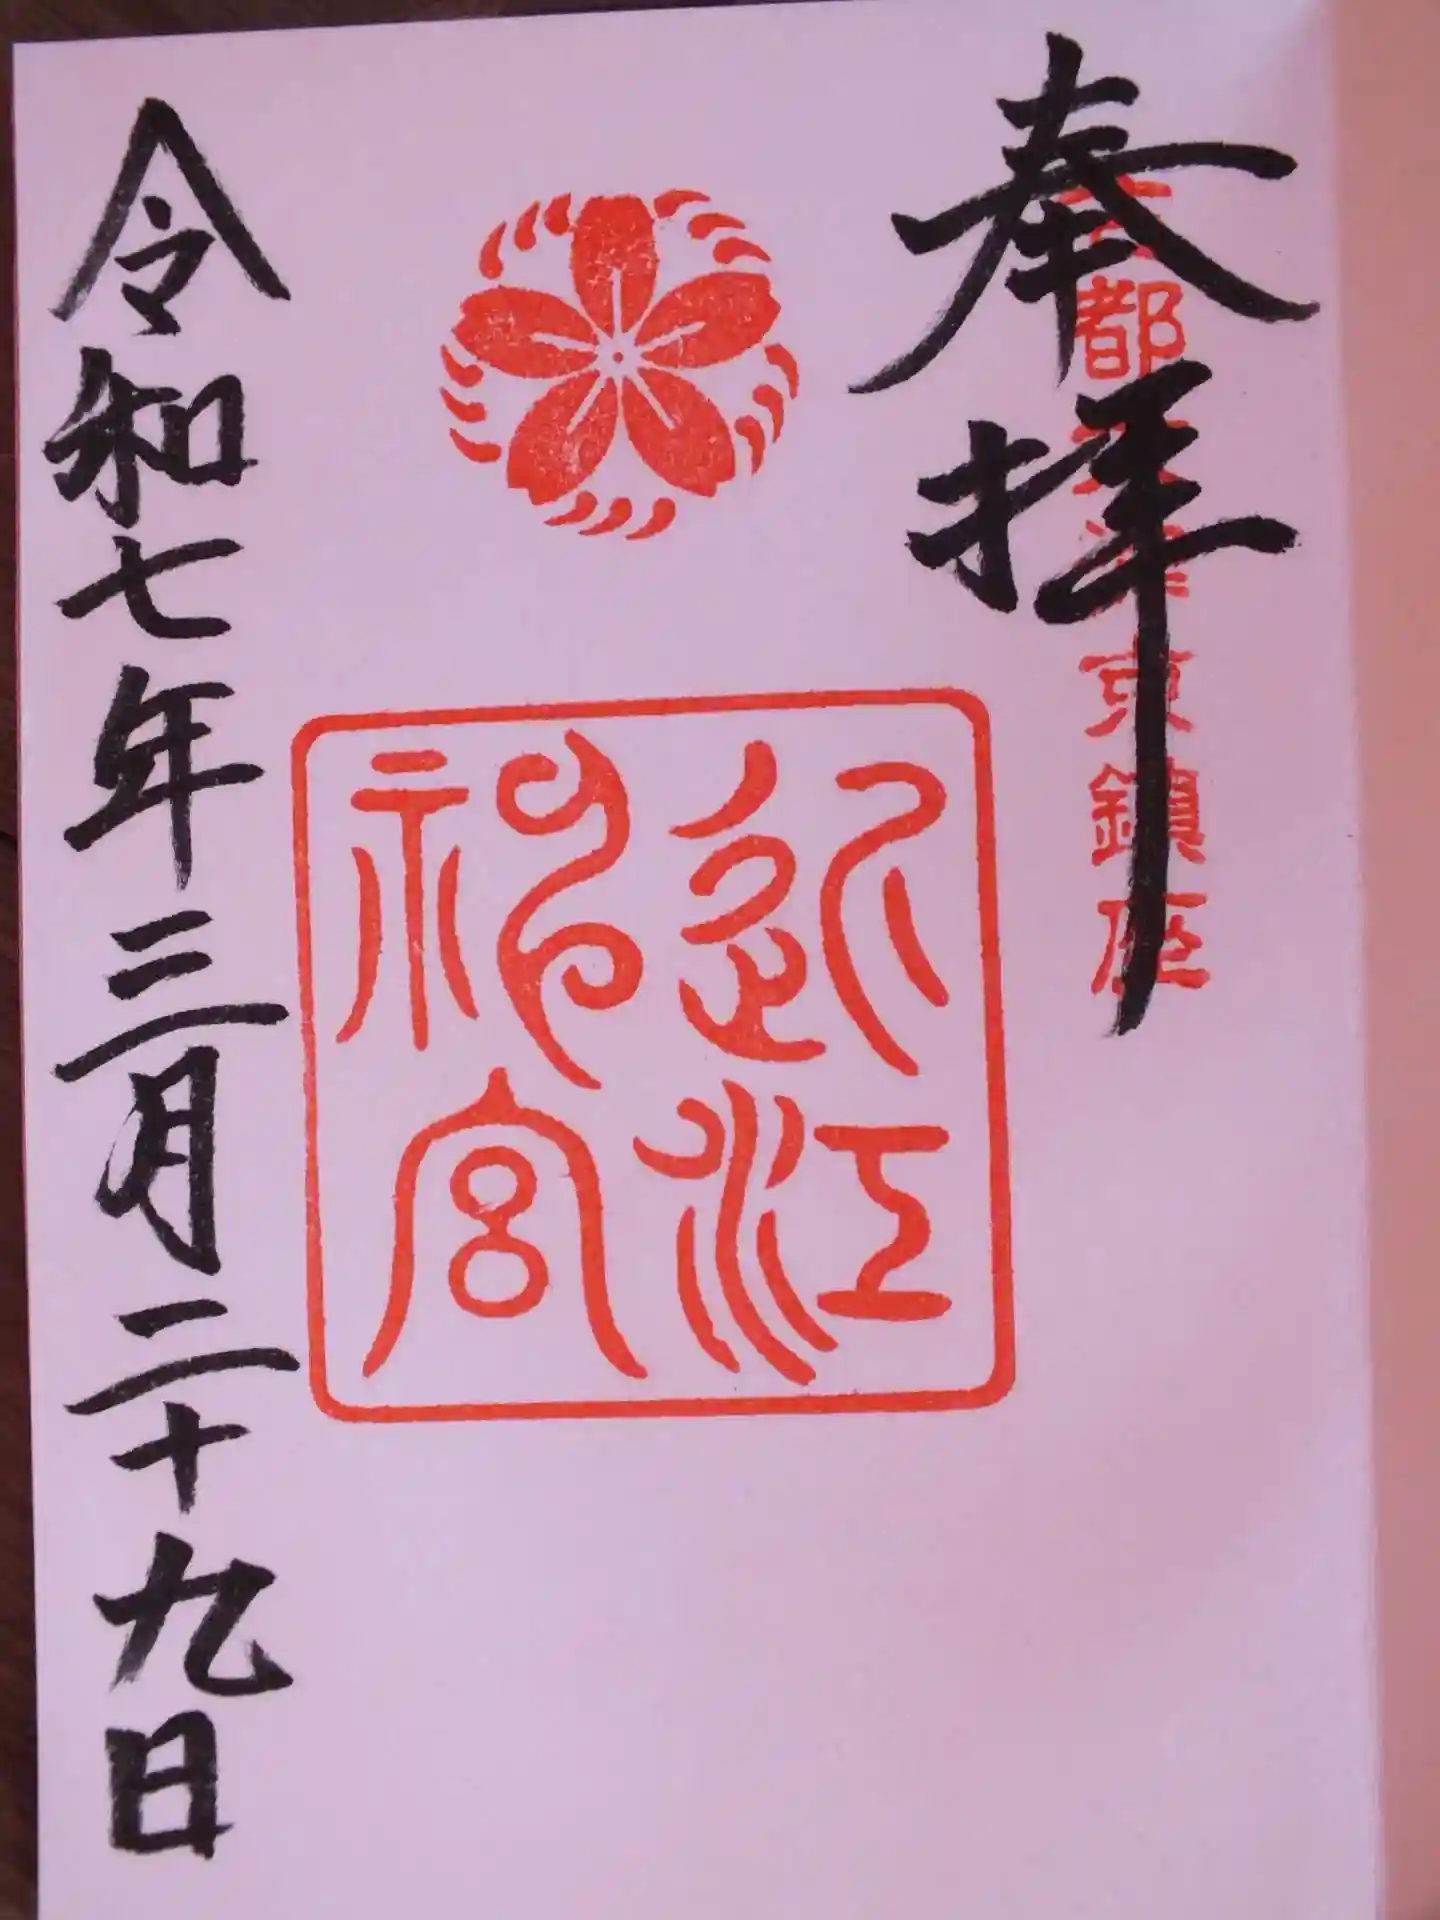 奉拝
古都大津京鎮座
近江
神宮
令和七年三月二十九日